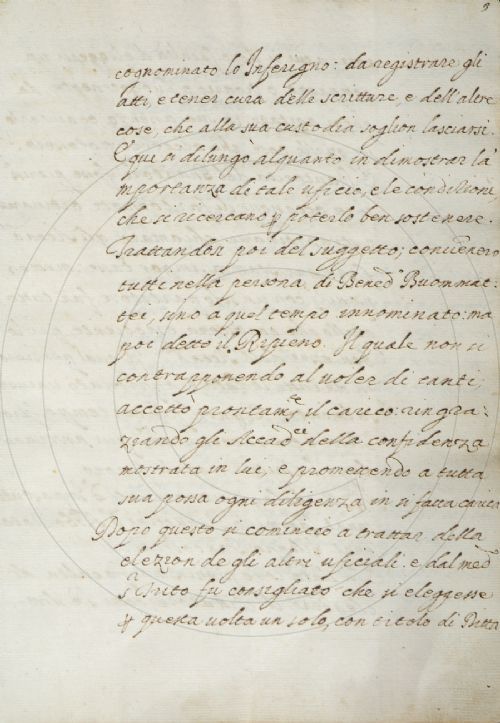 3
cognominato lo Inferigno: da registrare gli
atti, e tener cura delle scritture, e dell'altre
cose, che alla sua custodia soglion lasciarsi.
E qui si dilungò alquanto in dimostrar la
mportanza di tale uficio, e le condizioni
che si ricercano p poterlo ben sostenere.
Trattandosi poi del suggetto; convennero
tutti nella persona di Bened.º Buommat-
tei, uno a quel tempo innominato: ma
poi detto il Ripieno. Il quale non si
contrapponendo al voler di tanti;
accettò prontam.te il carico: ringra-
ziando gli Accad.ci della confidenza
mostrata in lui, e promettendo a tutta
sua possa ogni diligenza in si fatta carica
Dopo questo si cominciò a trattar della
elezion degli altri uficiali. e dal med.º
Trito fù consigliato che si eleggesse
p questa volta un solo, con titolo di